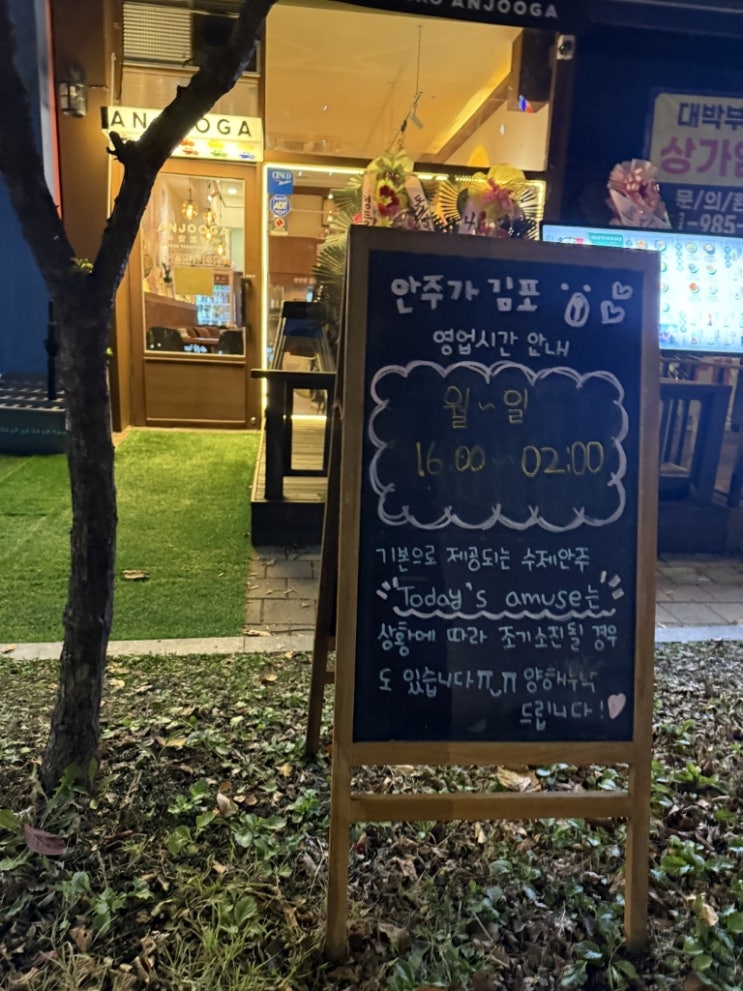 ANJOOGA
ANJOOGA
ANJOOGA
CESCO
ADT
대박부
상가임
문/의/환
-985-
안주가 김포
영업시간 안내
월~일
16:00~02:00
기본으로 제공되는 수제안주
"Today's amuse"는
상황에 따라 조기소진될 경우
도 있습니다ㅠ_ㅠ 양해부탁
드립니다!